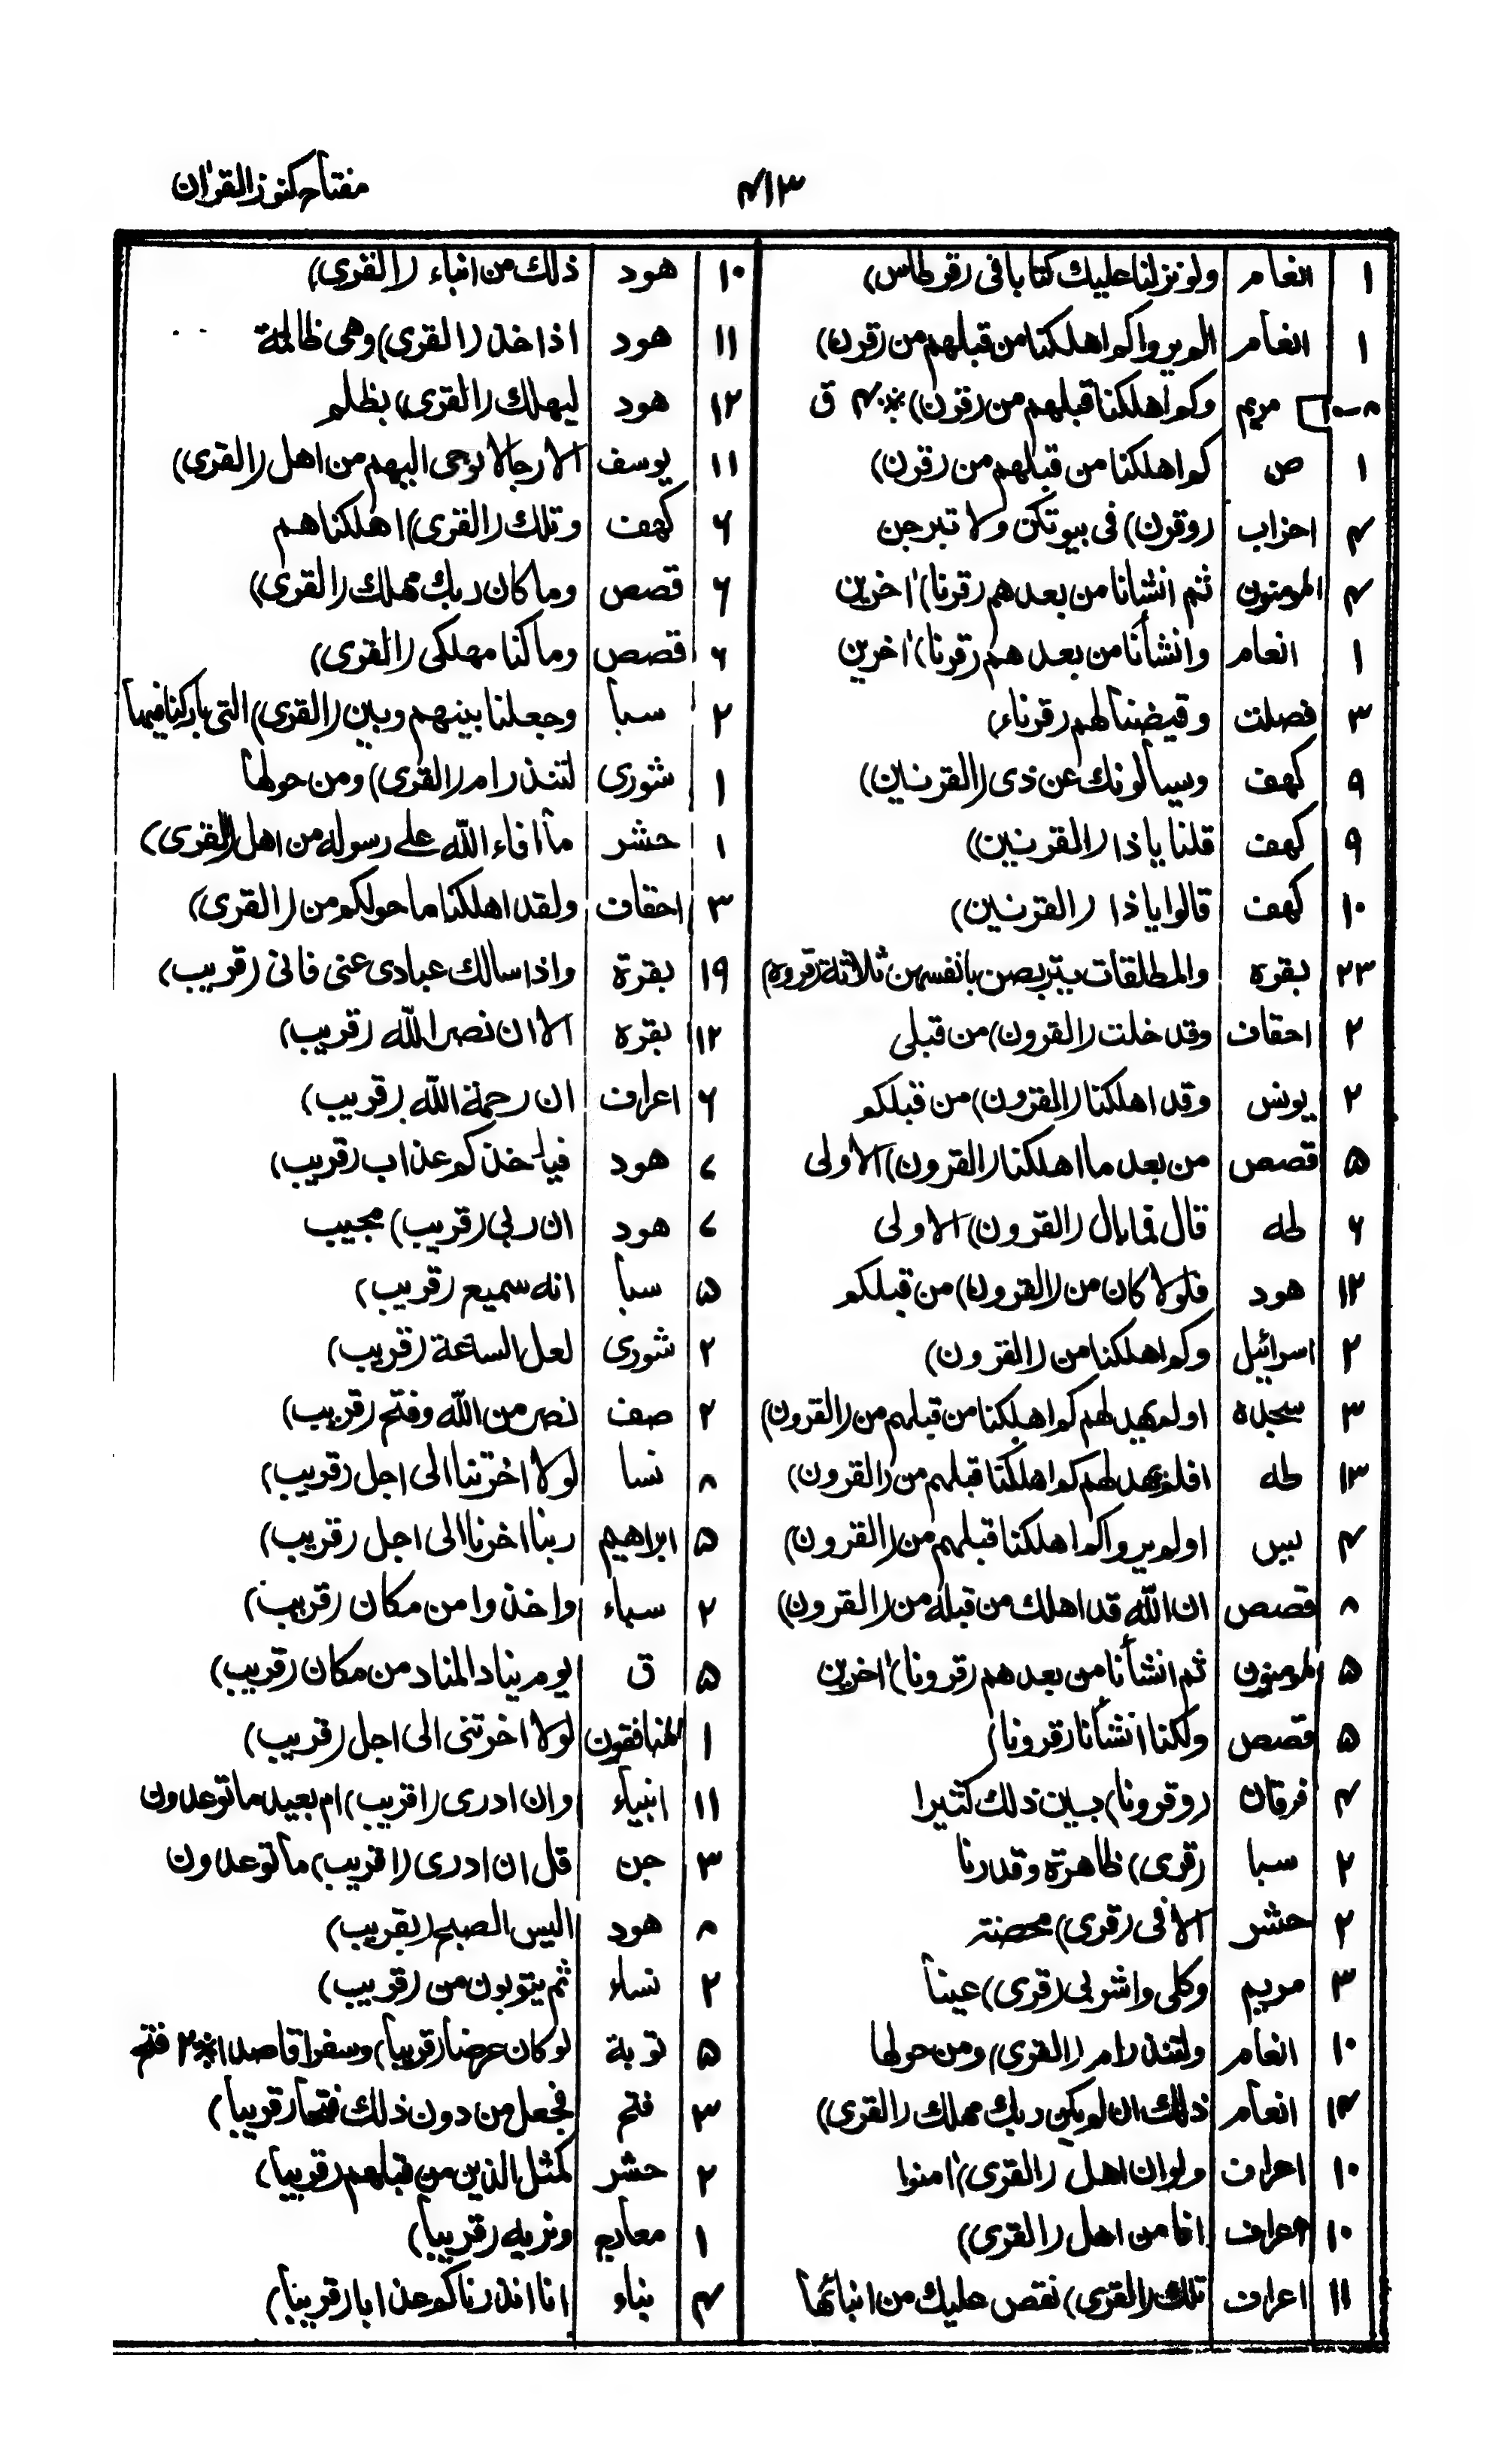 مفتاح کنوز القرٰان
۴۱۳
۱ انعام ولو نزلنا علیک کتابا فی (قرطاس)
۱ انعام الم یروا کم اهلکنا من قبلهم من (قرن)
۸-۱۰ مریم وکم اهلکنا قبلهم من (قرن) * ۴ ق
۱ ص کم اهلکنا من قبلهم من (قرن)
۴ احزاب (وقرن) فی بیوتکن ولا تبرجن
۴ المومنون ثم انشأنا من بعدهم (قرنا) اٰخرین
۱ انعام وانشأنا من بعدهم (قرنا) اٰخرین
۳ فصلت وقیضنا لهم (قرناء)
۹ کهف ویسألونک عن ذی (القرنین)
۹ کهف قلنا یا ذا (القرنین)
۱۰ کهف قالوا یا ذا (القرنین)
۲۳ بقره والمطلقات یتربصن بانفسهن ثلاثة (قروء)
۲ احقاف وقد خلت (القرون) من قبلی
۲ یونس وقد اهلکنا (القرون) من قبلکم
۵ قصص من بعد ما اهلکنا (القرون) الاولی
۶ طه قال فما بال (القرون) الاولی
۱۲ هود فلولا کان من (القرون) من قبلکم
۲ اسرائیل وکم اهلکنا من (القرون)
۳ سجده اولم یهد لهم کم اهلکنا من قبلهم من (القرون)
۱۳ طه افلم یهد لهم کم اهلکنا قبلهم من (القرون)
۴ یس اولم یروا کم اهلکنا قبلهم من (القرون)
۸ قصص ان الله قد اهلک من قبله من (القرون)
۵ المومنون ثم انشأنا من بعدهم (قرونا) اٰخرین
۵ قصص ولکنا انشأنا (قرونا)
۴ فرقان (وقرونا) بین ذلک کثیرا
۲ سبا (قری) ظاهرة وقدرنا
۲ حشر الا فی (قری) محصنة
۳ مریم وکلی واشربی (قری) عینا
۱۰ انعام ولتنذر ام (القری) ومن حولها
۱۴ انعام ذلک ان لم یکن ربک مهلک (القری)
۱۰ اعراف ولو ان اهل (القری) اٰمنوا
۱۰ اعراف افامن اهل (القری)
۱۱ اعراف تلک (القری) نقص علیک من انبائها
۱۰ هود ذلک من انباء (القری)
۱۱ هود اذا اخذ (القری) وهی ظالمة
۱۲ هود لیهلک (القری) بظلم
۱۱ یوسف الا رجالا نوحی الیهم من اهل (القری)
۶ کهف وتلک (القری) اهلکناهم
۶ قصص وما کان ربک مهلک (القری)
۶ قصص وما کنا مهلکی (القری)
۲ سبأ وجعلنا بینهم وبین (القری) التی بارکنا فیها
۱ شوری لتنذر ام (القری) ومن حولها
۱ حشر ما افاء الله علی رسوله من اهل (القری)
۳ احقاف ولقد اهلکنا ما حولکم من (القری)
۱۹ بقرة واذا سالک عبادی عنی فانی (قریب)
۱۲ بقره الا ان نصر الله (قریب)
۶ اعراف ان رحمة الله (قریب)
۷ هود فیاخذکم عذاب (قریب)
۷ هود ان ربی (قریب) مجیب
۵ سبأ انه سمیع (قریب)
۲ شوری لعل الساعة (قریب)
۲ صف نصر من الله وفتح (قریب)
۸ نسا لولا اخرتنا الی اجل (قریب)
۵ ابراهیم ربنا اخرنا الی اجل (قریب)
۲ سباء واخذوا من مکان (قریب)
۵ ق یوم یناد المناد من مکان (قریب)
۱ المنافقون لولا اخرتنی الی اجل (قریب)
۱۱ انبیاء وان ادری (اقریب) ام بعید ما توعدون
۳ جن قل ان ادری (اقریب) ما توعدون
۸ هود الیس الصبح (بقریب)
۲ نساء ثم یتوبون من (قریب)
۵ توبة لو کان عرضا (قریبا) وسفرا قاصدا * ۲ فتح
۳ فتح فجعل من دون ذلک فتحا (قریبا)
۲ حشر کمثل الذین من قبلهم (قریبا)
۱ معارج ونریه (قریبا)
۴ نباء انا انذرناکم عذابا (قریبا)